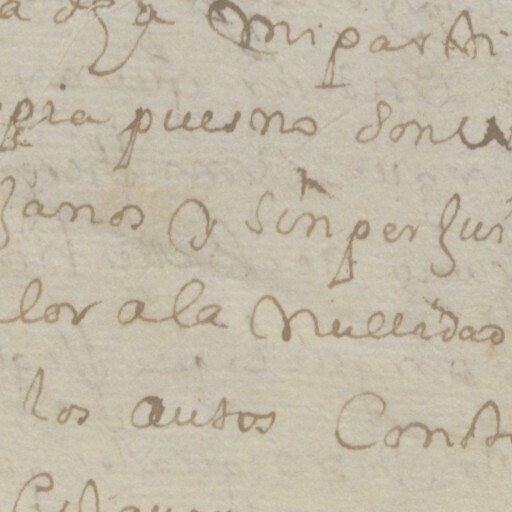 a dha mi parti
pia pues no son v
zanos y sin perjui
lor a la nullidad
los autos Const